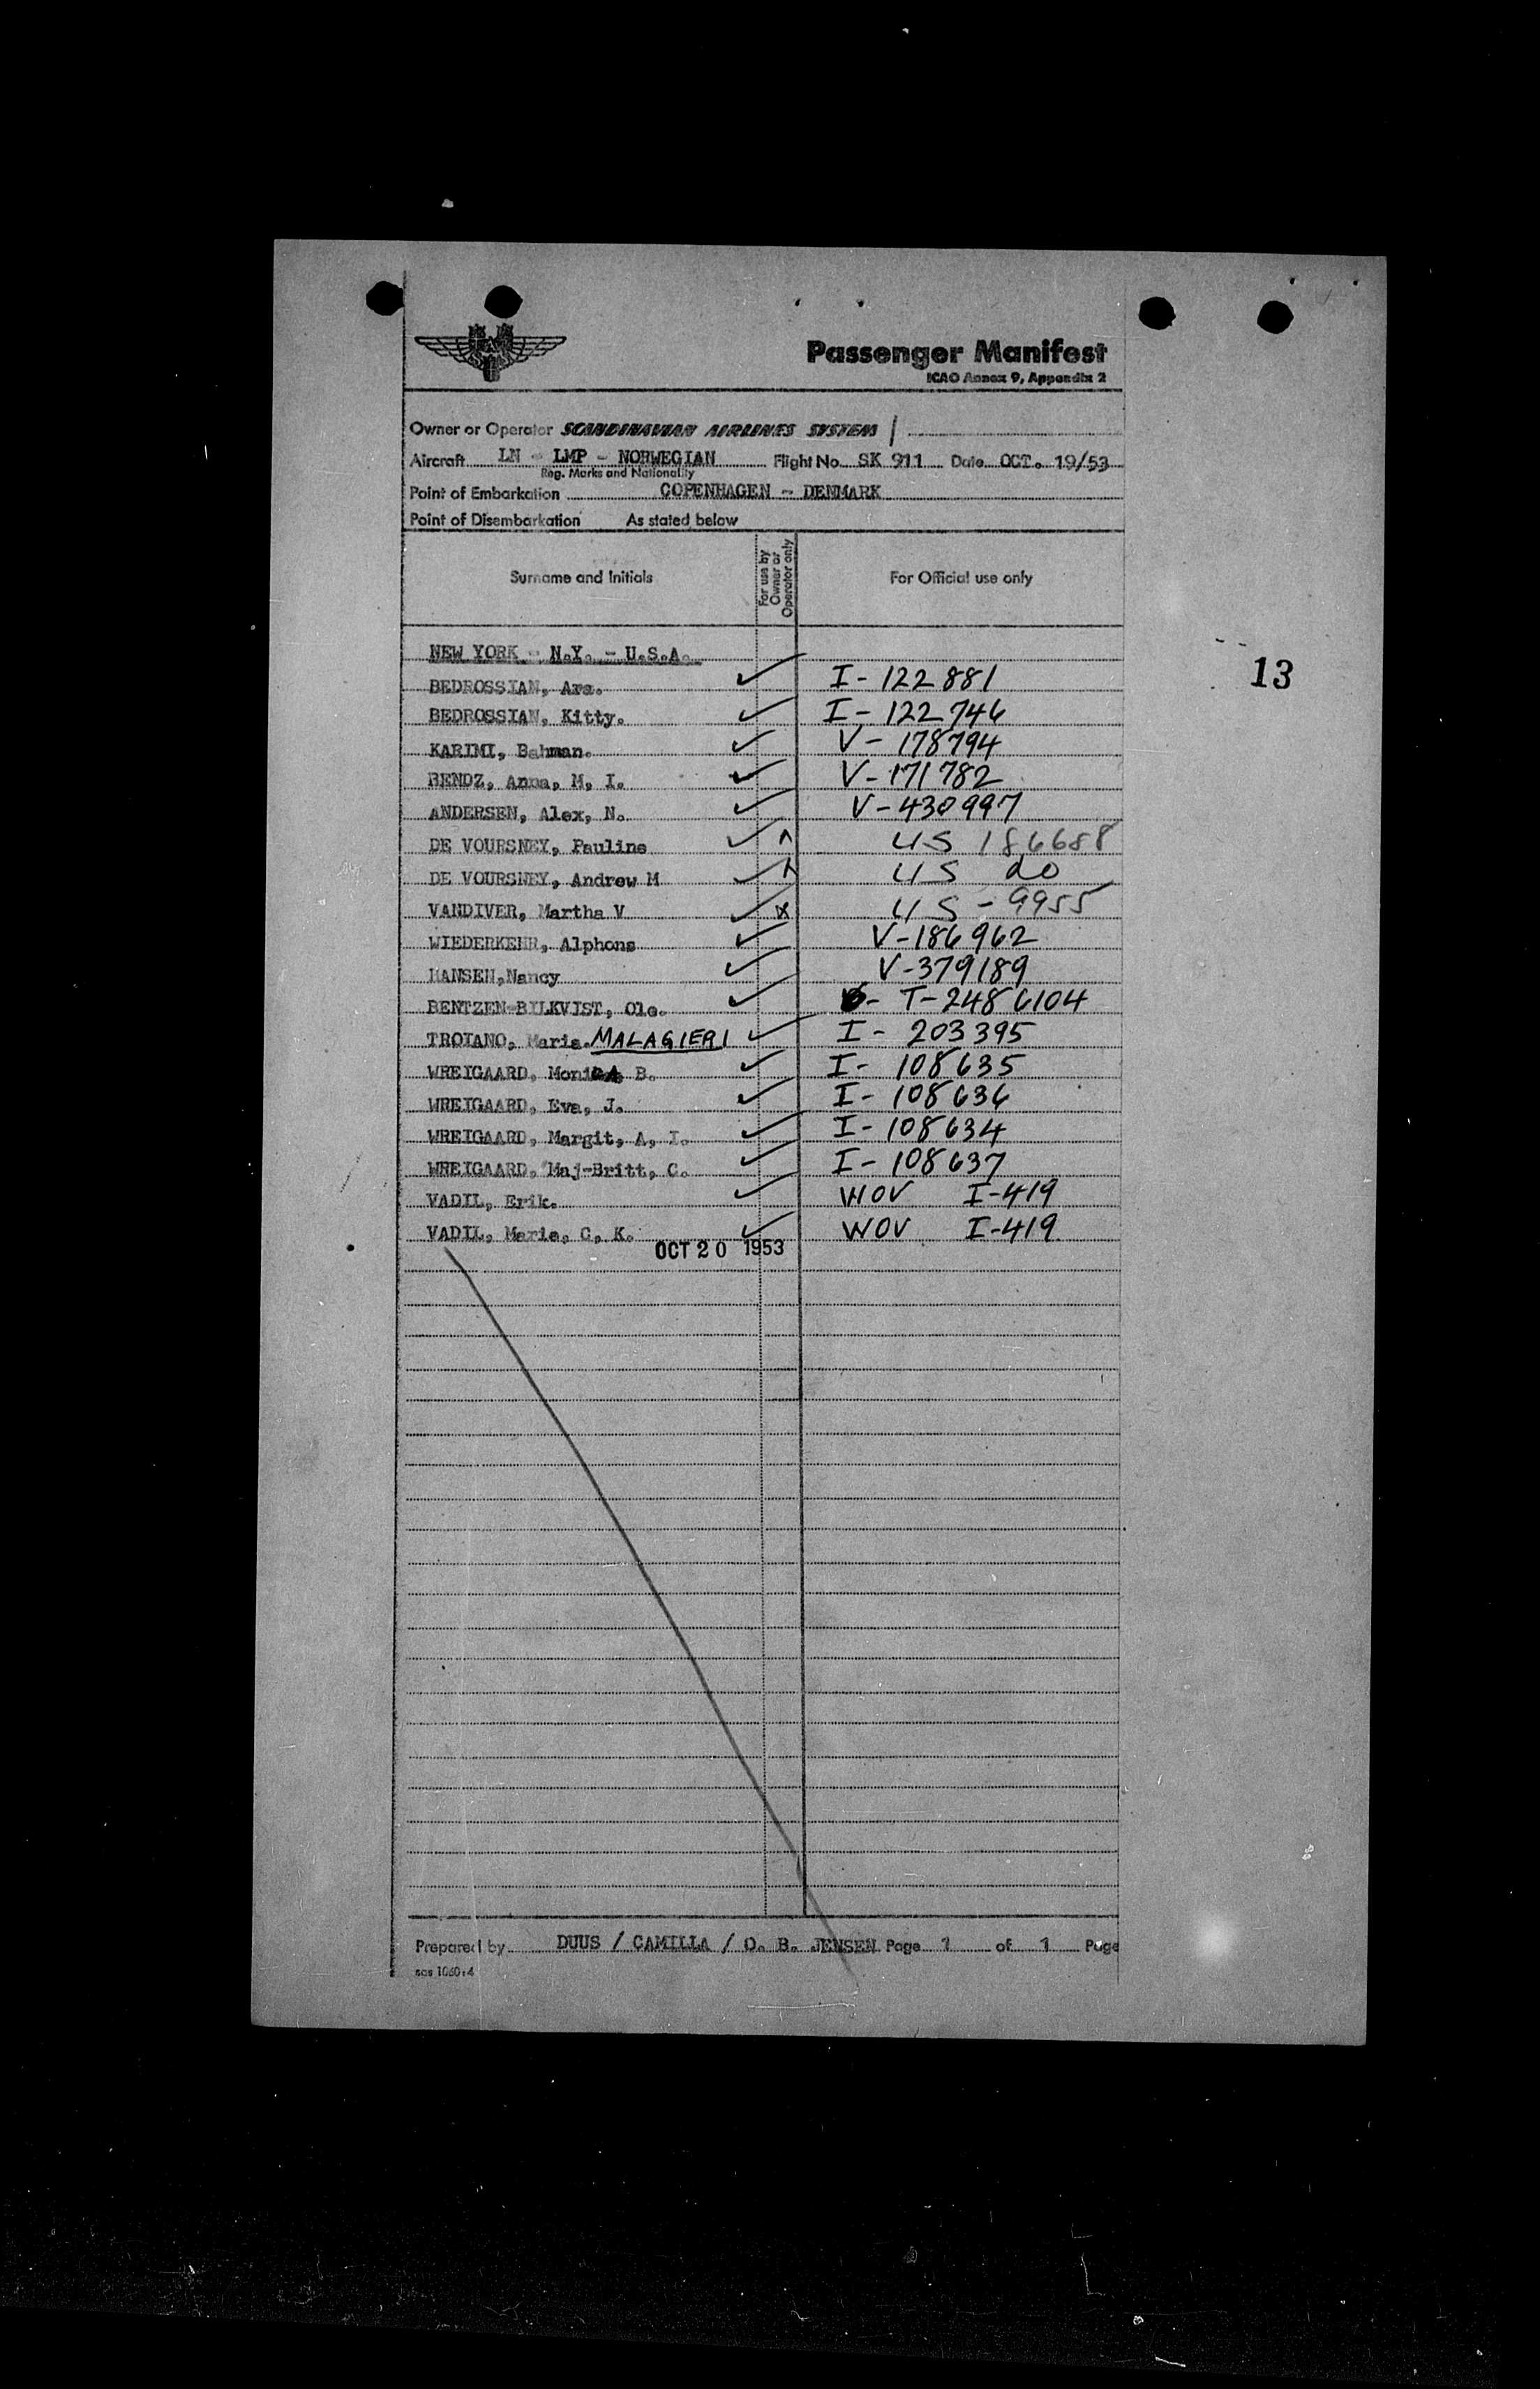 SAS
Passenger Manifest
ICAO Annex 9, Appendix 2
Owner or Operator SCANDINAVIAN AIRLINES SYSTEM
Aircraft LN - LMP - NORWEGIAN Flight No. SK 911 Date OCT. 19/53
Reg. Marks and Nationality
Point of Embarkation COPENHAGEN - DENMARK
Point of Disembarkation As stated below
Surname and Initials For use by Owner or Operator only For Official use only
NEW YORK - N.Y. - U.S.A.
13
BEDROSSIAN, Ara. ✓ I - 122881
BEDROSSIAN, Kitty. ✓ I - 122746
KARIMI, Bahman. ✓ V - 178794
BENDZ, Anna, M, I. ✓ V - 171782
ANDERSEN, Alex, N. ✓ V - 430997
DE VOURSNEY, Pauline ✓ US 186688
DE VOURSNEY, Andrew M ✓ US do
VANDIVER, Martha V ✓ x US - 9955
WIEDERKEHR, Alphons ✓ V-186962
HANSEN,Nancy ✓ V-379189
BENTZEN-BILKVIST, Ole. ✓ - T-2486104
TROIANO, Maria. MALAGIERI ✓ I - 203395
WREIGAARD, MoniCA, B. ✓ I - 108635
WREIGAARD, Eva, J. ✓ I - 108636
WREIGAARD, Margit, A, I. ✓ I - 108634
WREIGAARD, Maj-Britt, C. ✓ I - 108637
VADIL, Erik. ✓ WOV I-419
VADIL, Marie, C, K. ✓ WOV I-419
OCT 20 1953
Prepared by DUUS / CAMILLA / O. B. JENSEN Page 1 of 1 Page
sas 1060:4